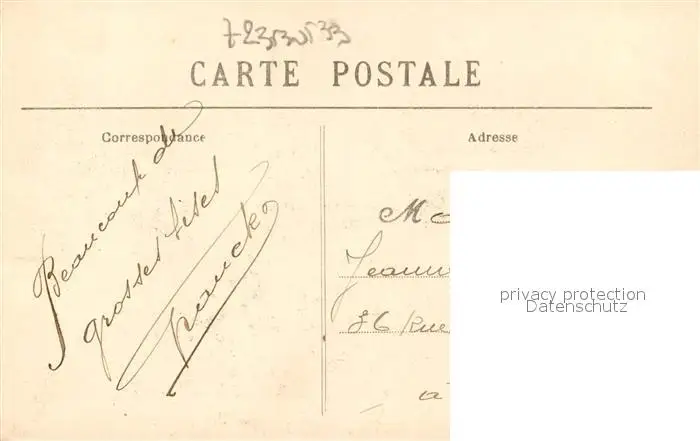 CARTE POSTALE
Correspondance
Adresse
Beaucoup de
grosses bises
Franck
Jeann
86 Rue
à
privacy protection
Datenschutz